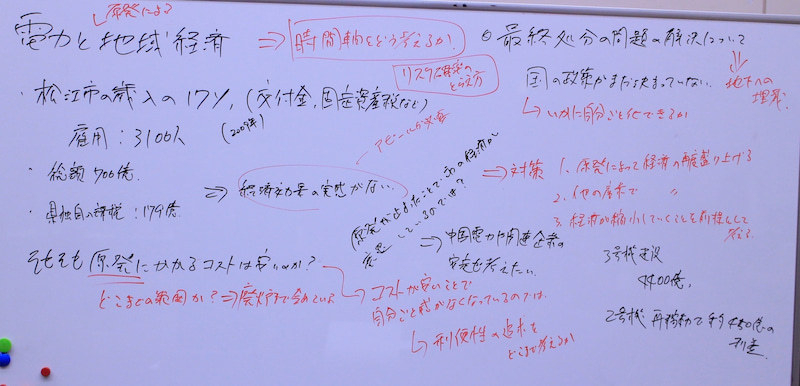 原発による
電力と地域経済
⇒ 時間軸をどう考えるか?
リスクと確率の
とらえ方
・松江市の歳入の17%, (交付金, 固定資産税など)
(200億)
雇用:3100人
・総額700億
⇒ 経済効果の実感がない
アピールが必要
・県独自の課税:179億
原発が止まったことで
⇒ 中国電力や関連企業の
も考えたい.
そもそも原発にかかるコストは安いのか?
どこまでの範囲か? ⇒ 廃炉まで含めている
↳ コストが安いことで
自分ごと感がなくなっているのでは.
↳ 利便性の追求を
どこまで考えるか
◎最終処分の問題の解決について
国の政策がまだ決まっていない.
⇒ 地下への
埋設.
↳ いかに自分ごと化できるか
⇒ 対策 1. 原発によって経済の再度盛り上げる
2. 他の産業で 〃
3. 経済が縮小していくことを前提として
考える.
3号機建設
4400億.
2号機 再稼動で